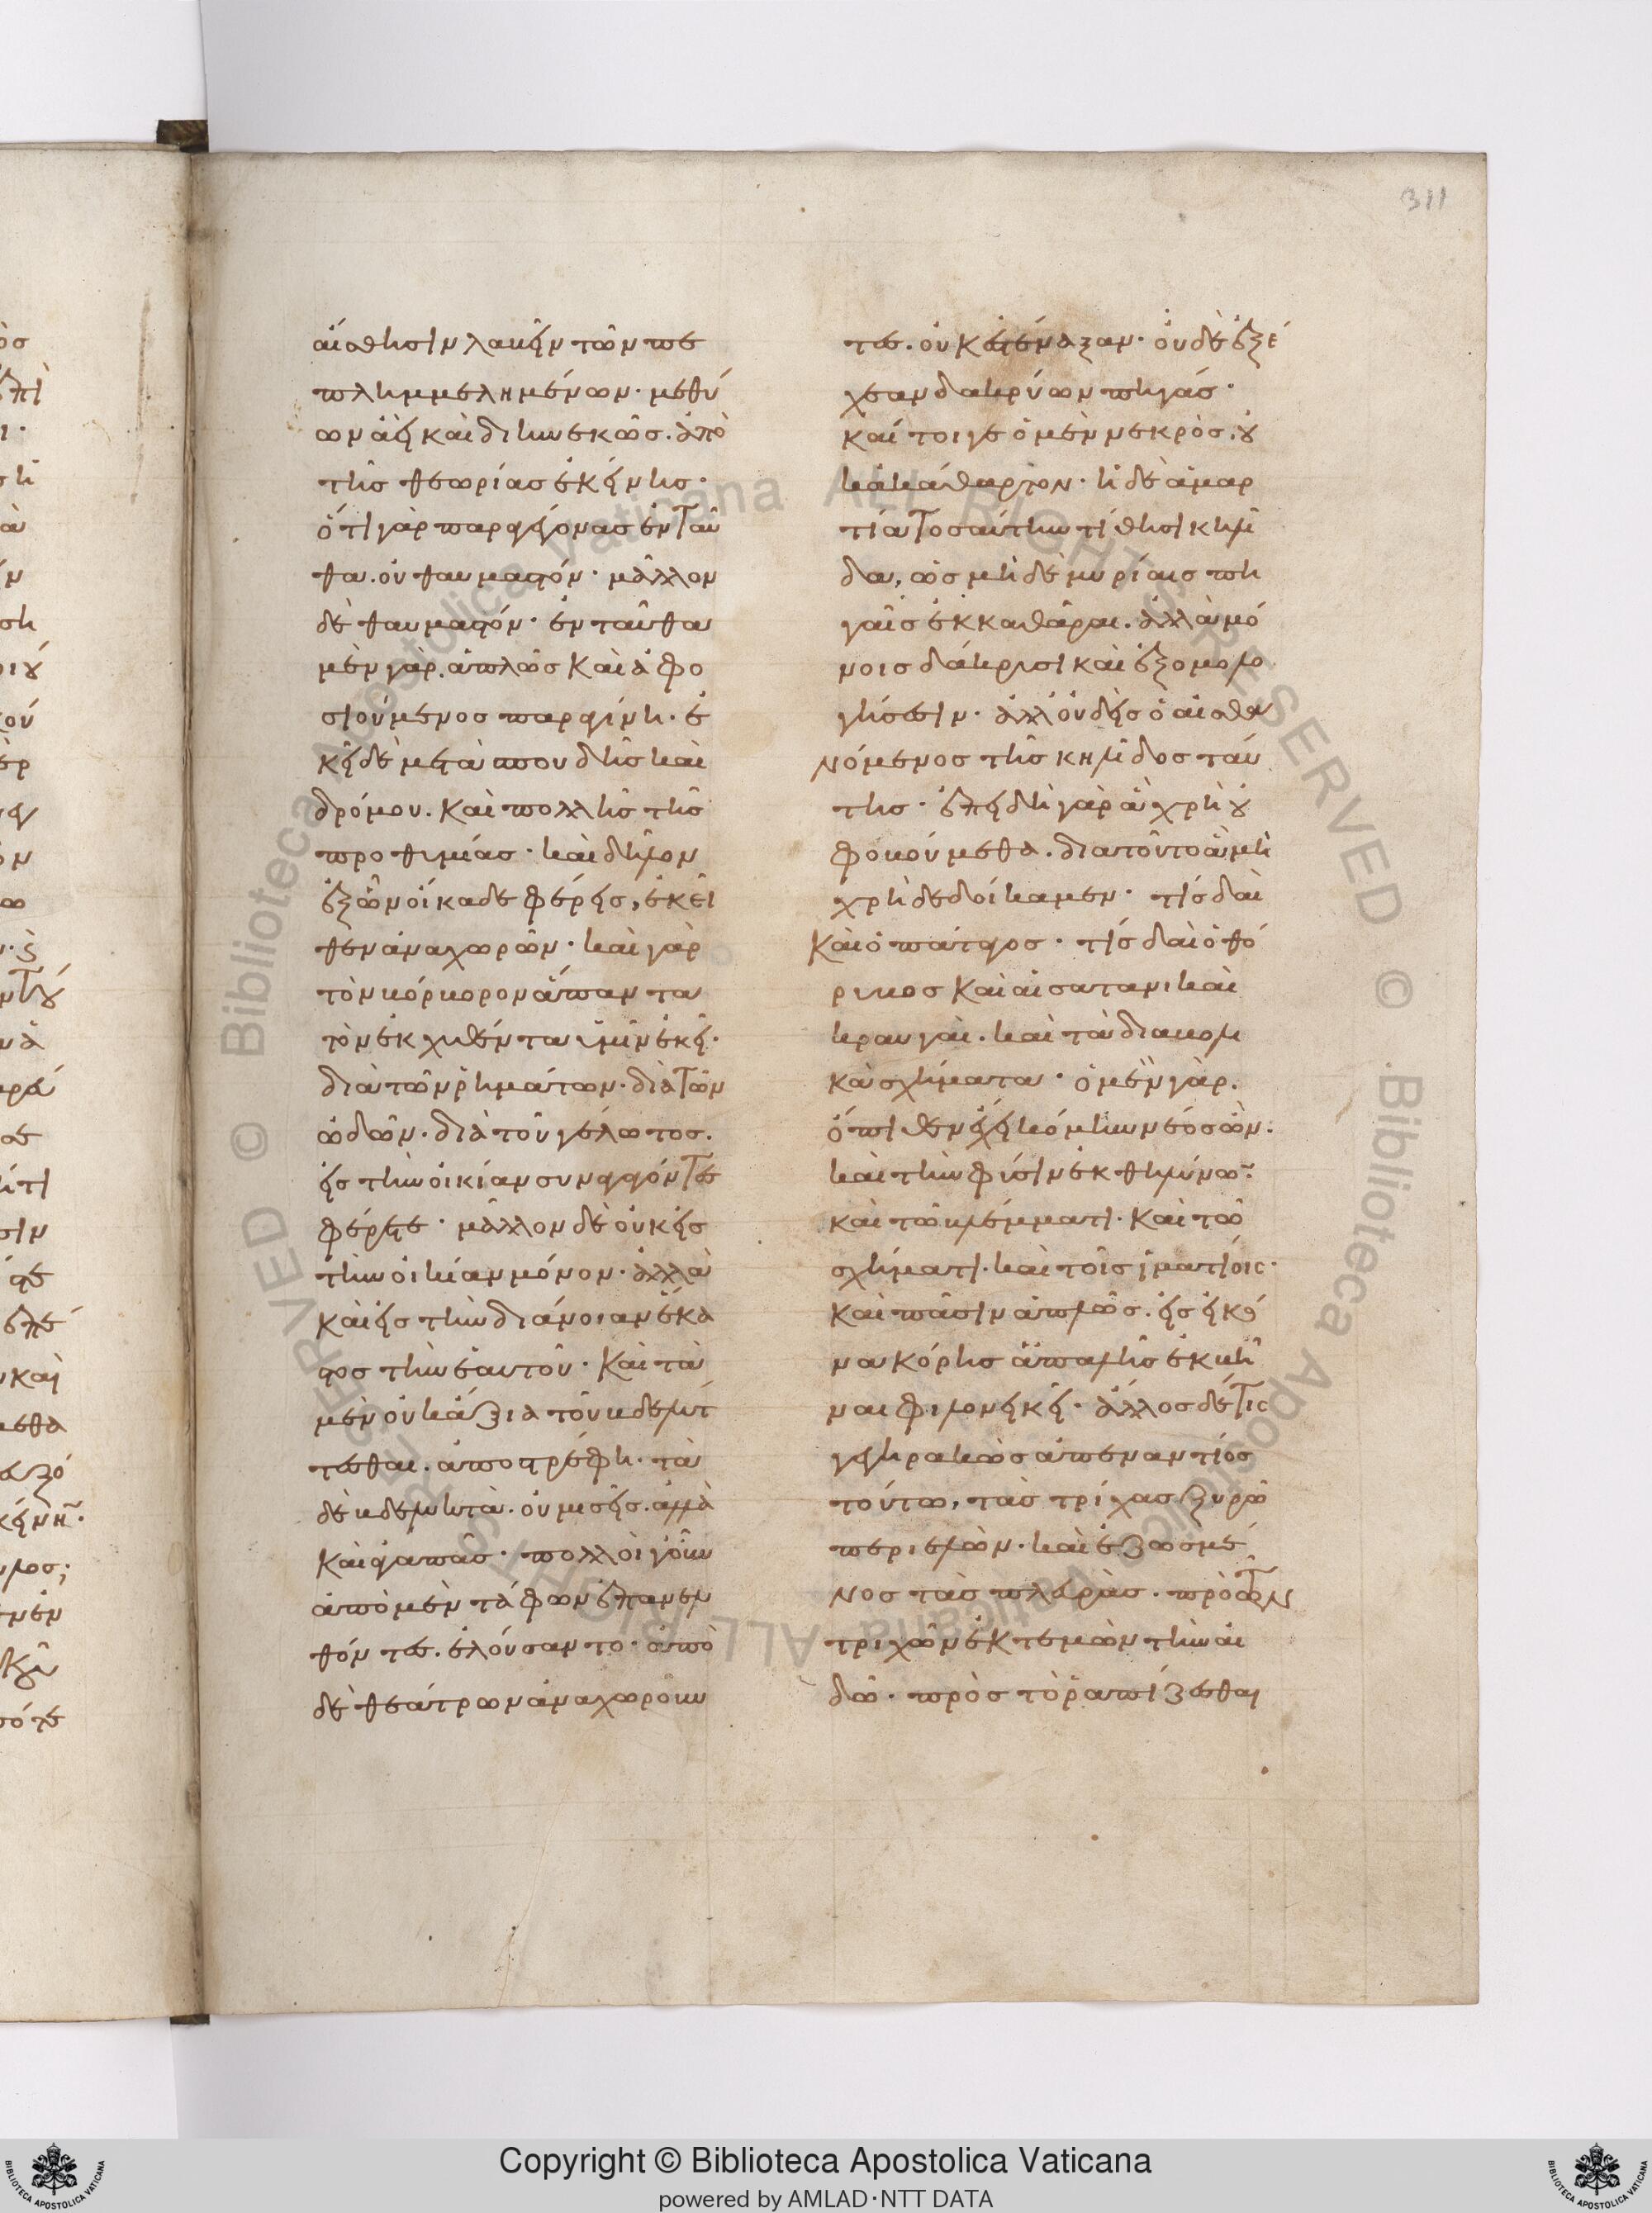 311
αἴσθησιν λαβεῖν τῶν πε
πλημμελημένων· μεθύ
ων ἀεὶ καὶ διηνεκῶς. ἀπὸ
τῆς θεωρίας ἐκείνης·
ὅτι γὰρ παραγέγονας ἐνταῦ
θα. οὐ θαυμαστόν· μᾶλλον
δὲ θαυμαστόν· ἐνταῦθα
μὲν γὰρ. ἁπλῶς καὶ ἀφο
σιούμενος παραγίνη· ἐ
κεῖ δὲ μετὰ σπουδῆς καὶ
δρόμου. καὶ πολλῆς τῆς
προθυμίας· καὶ δῆλον
ἐξ ὧν οἴκαδε φέρεις, ἐκεῖ
θεν ἀναχωρῶν· καὶ γὰρ
τὸν βόρβορον ἅπαντα
τὸν ἐκχυθέντα ὑμῖν ἐκεῖ·
διὰ τῶν ῥημάτων· διὰ τῶν
ὠδῶν· διὰ τοῦ γέλωτος.
εἰς τὴν οἰκίαν συναγαγόντες
φέρετε· μᾶλλον δὲ οὐκ εἰς
τὴν οἰκίαν μόνον· ἀλλὰ
καὶ εἰς τὴν διάνοιαν ἕκα
στος τὴν ἑαυτοῦ· καὶ τὰ
μὲν οὐκ ἄξια τοῦ βδελύτ
τεσθαι. ἀποστρέφη· τὰ
δὲ βδελυκτὰ. οὐ μισεῖς. ἀλλὰ
καὶ ἀγαπᾶς· πολλοὶ γοῦν
ἀπὸ μὲν τάφων ἐπανελ
θόντες. ἐλούσαντο· ἀπὸ
δὲ θεάτρων ἀναχωροῦν
τες. οὐκ ἐστέναξαν· οὐδὲ ἐξέ
χεαν δακρύων πηγάς·
καίτοιγε ὁ μὲν νεκρὸς. οὐ
κ ἀκάθαρτον· ἡ δὲ ἁμαρ
τία τοσαύτην τίθησι κηλῖ
δα, ὡς μηδὲ μυρίαις πη
γαῖς ἐκκαθᾶραι. ἀλλὰ μό
νοις δάκρυσι καὶ ἐξομολο
γήσεσιν· ἀλλ οὐδεὶς ὁ αἰσθα
νόμενος τῆς κηλῖδος ταύ
της· ἐπειδὴ γὰρ ἃ χρὴ οὐ
φοβούμεθα. διατοῦτο ἃ μὴ
χρὴ δεδοίκαμεν· τίς δαὶ
καὶ ὁ πάταγος· τίς δαὶ ὁ θό
ρυβος καὶ αἱ σατανικαὶ
κραυγαὶ. καὶ τὰ διαβολι
κὰ σχήματα· ὁ μὲν γὰρ.
ὄπισθεν ἔχει κόμην νέος ὢν.
καὶ τὴν φύσιν ἐκθηλύνων
καὶ τῶ βλέμματι· καὶ τῶ
σχήματι· καὶ τοῖς ἱματίοις·
καὶ πᾶσιν ἁπλῶς. εἰς εἰκό
να κόρης ἁπαλῆς ἐκβῆ
ναι φιλονεικεῖ· ἄλλος δέ τις
γεγηρακὼς ἀπεναντίος
τούτω, τὰς τρίχας ξυρῶ
περιελὼν· καὶ ἐζωσμέ
νος τὰς πλευρὰς. πρὸ τῶν
τριχῶν ἐκτεμὼν τὴν αἰ
δῶ· πρὸς τὸ ῥαπίζεσθαι
Copyright © Biblioteca Apostolica Vaticana
powered by AMLAD·NTT DATA